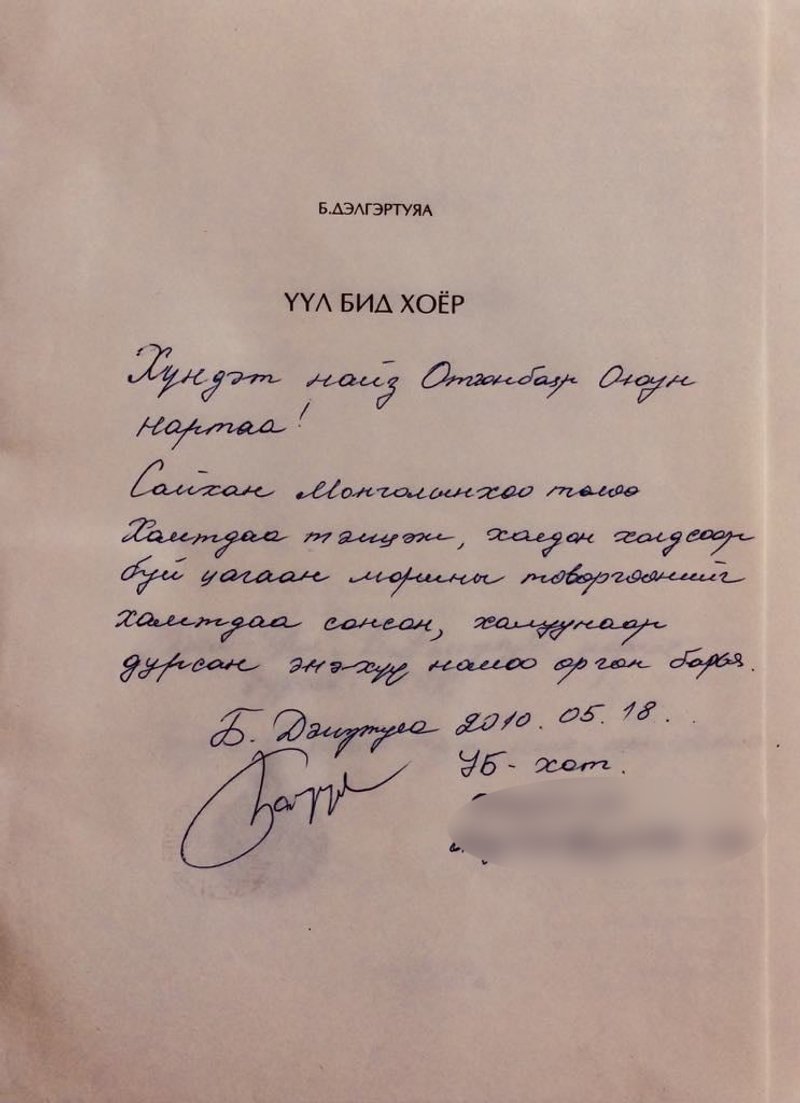 Б.ДЭЛГЭРТУЯА
ҮҮЛ БИД ХОЁР
Хүндэт найз Отгонбаяр Оюун
нартаа!
Сайхан Монголынхоо төлөө
Хамтдаа тэмцэж, халдан халдсаар
буй цагаан морины төвөргөөнийг
хамтдаа сонсон, халуунаар
дурсан энэхүү номоо өргөн барья.
Б. 2010. 05. 18.
УБ - хот.